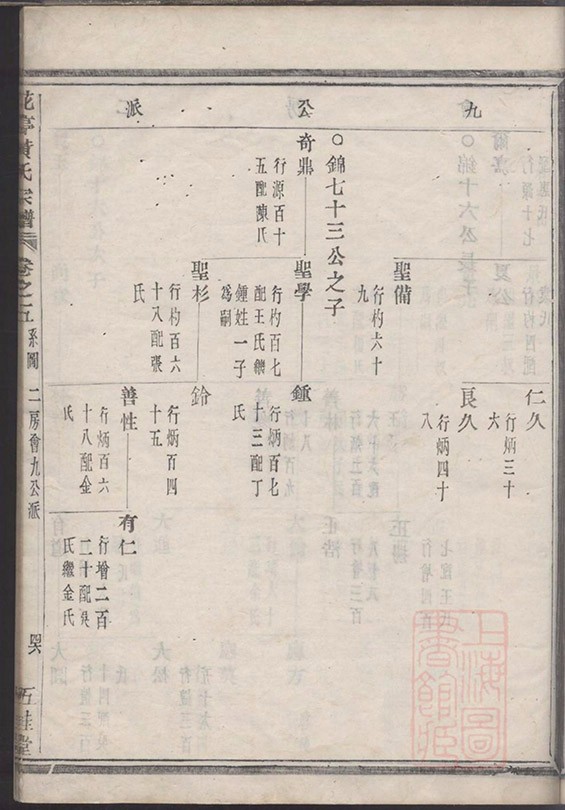 九公派
仁久
行炳三十
六
良久
行炳四十
八
聖備
行杓六十
九
○錦七十三公之子
奇鼎
行源百十
五配陳氏
聖學
行杓百七
配王氏繼
鍾姓一子
爲嗣
鍾
行炳百七
十三配丁
氏
聖杉
行杓百六
十八配張
氏
鈴
行炳百四
十五
善性
行炳百六
十八配金
氏
有仁
行增二百
二十配吳
氏繼金氏
花亭黃氏宗譜
卷之五
系圖
二房會九公派
五桂堂
上海圖
書館藏